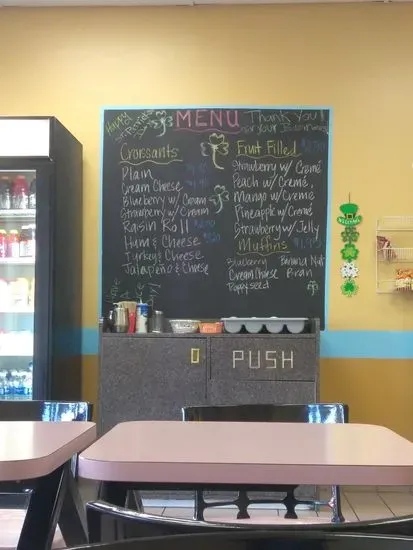 Happy
St. Patrick's
Day
MENU
Thank You!
for your Business
Croissants
Plain
Cream Cheese
Blueberry w/ Cream
Strawberry w/ Cream
Rasin Roll
Ham & Cheese
Turkey & Cheese
Jalapeño & Cheese
Fruit Filled
Strawberry w/ Cremé
Peach w/ Cremé
Mango w/ Cremé
Pineapple w/ Cremé
Strawberry w/ Jelly
Muffins
Blueberry Banana Nut
Cream Cheese Bran
Poppyseed
PUSH